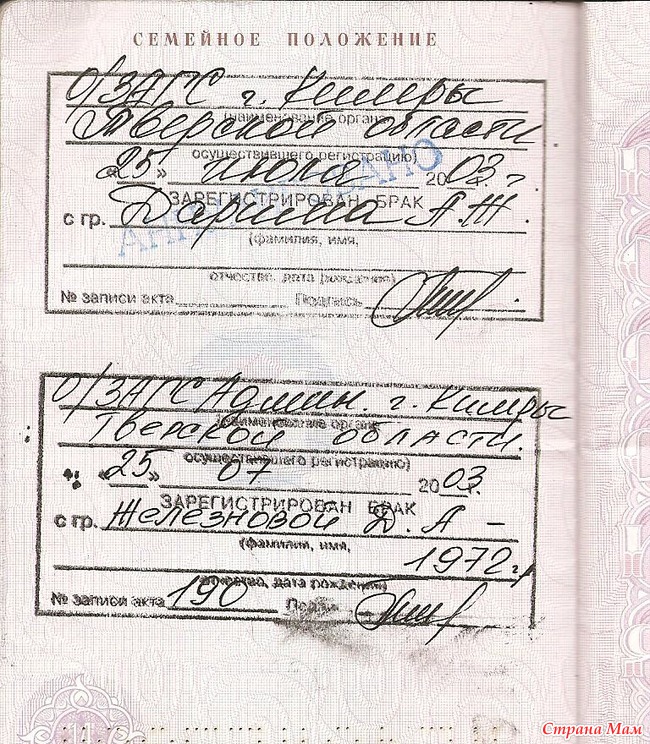 СЕМЕЙНОЕ ПОЛОЖЕНИЕ
О/ЗАГС г. Кимры
(наименование органа,
Тверской области
осуществившего регистрацию)
«25» июля 2003 г.
АННУЛИРОВАНО
ЗАРЕГИСТРИРОВАН БРАК
с гр. Дарима А.Ж.
(фамилия, имя,
отчество, дата рождения)
№ записи акта Подпись
О/ЗАГС Админ. г. Кимры
(наименование органа,
Тверской области.
осуществившего регистрацию)
«25» 07 2003 г.
ЗАРЕГИСТРИРОВАН БРАК
с гр. Железновой Д. А –
(фамилия, имя,
1972 г.
отчество, дата рождения)
№ записи акта 190 Подпись
Страна Мам